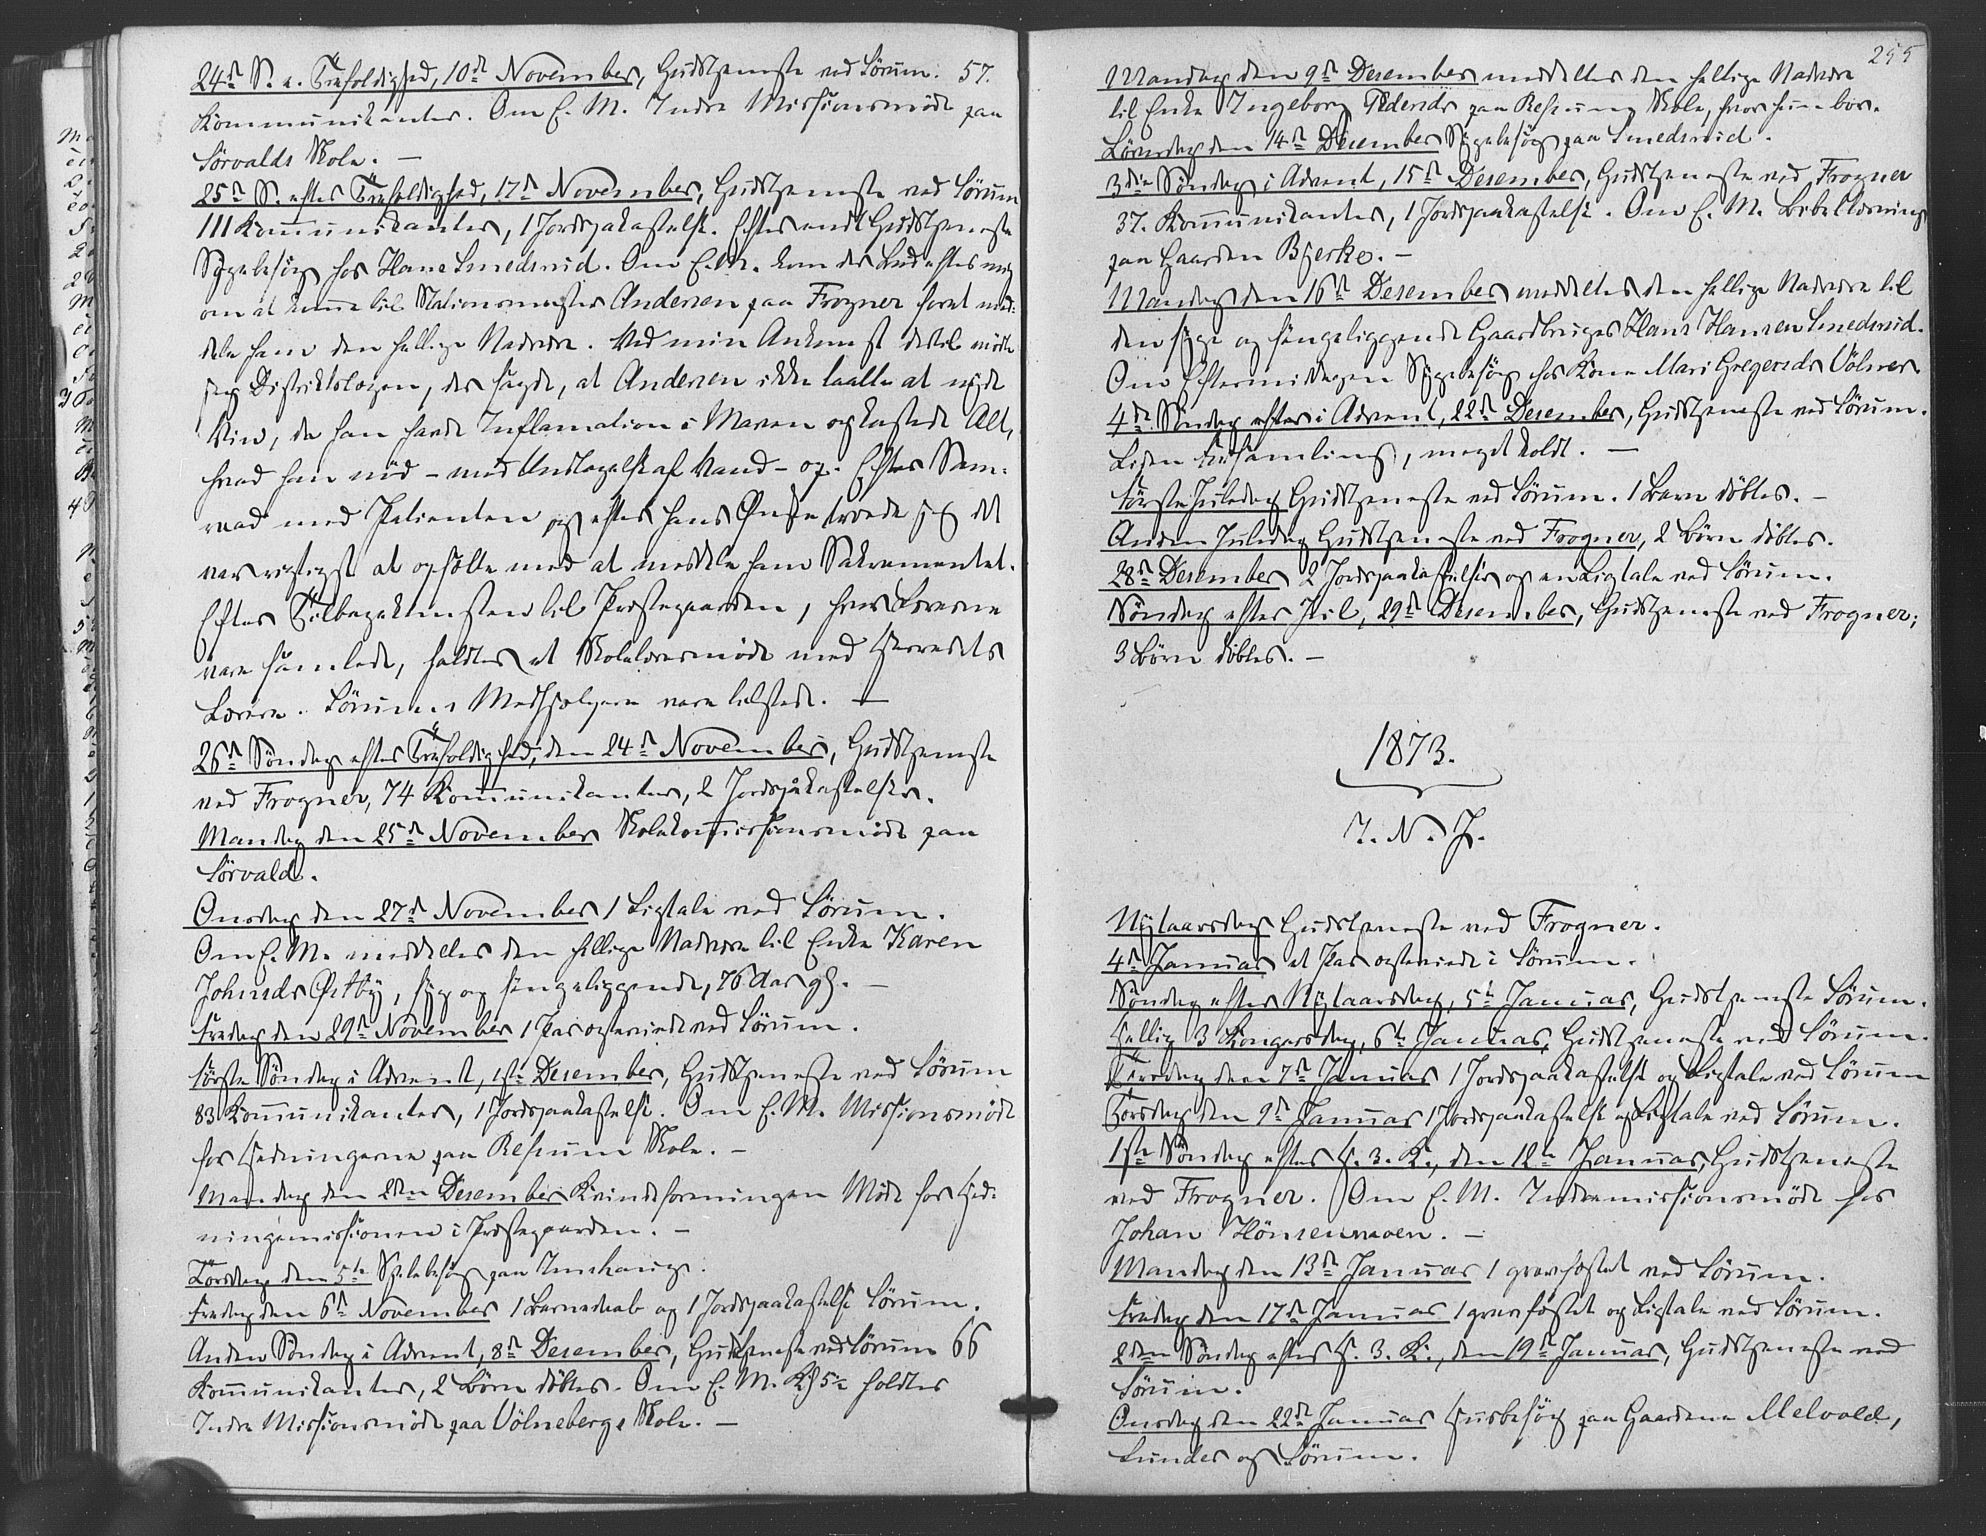 24de S. e. Trefoldighed, 10de November, Gudstjeneste ved Sørum. 57.
Kommunikanter. Om E. M. Indre Missionsmøde paa
Sørvalds Skole. —
25de S. efter Trefoldighed, 17de November, Gudstjeneste ved Sørum
111 Kommunikanter, 1 Jordpaakastelse. Efter endt Gudstjeneste
Sygebesøg hos Hans Smedsrud. Om E. M. kom der Bud efter mig
om at komme til Stationsmester Andersen paa Frogner for at med-
dele ham den hellige Nadvere. Ved min Ankomst dertil mødte
jeg Distriktslægen, der sagde, at Andersen ikke taalte at nyde
Vin, da han havde Inflamation i Maven og kastede Alt,
hvad han nød – med Undtagelse af Vand – op. Efter Sam-
raad med Patienten og efter hans Ønske troede jeg det
var rigtigst at opsætte med at meddele ham Sakramentet.
Efter Tilbagekomsten til Præstegaarden, hvor Lærerne
vare samlede, holdtes et Skolelærermøde med Herredets
Lærere. Sørums Medhjælpere vare tilstede. —
26de Søndag efter Trefoldighed, den 24de November, Gudstjeneste
ved Frogner, 74 Kommunikanter, 2 Jordpåkastelser.
Mandag den 25de November Skolekommissionsmøde paa
Sørvald.
Onsdag den 27de November 1 Ligtale ved Sørum.
Om E. M. meddeltes den hellige Nadvere til Enke Karen
Johnsds Østby, syg og sengeliggende, 76 Aar gl. —
Fredag den 29de November 1 Par ægteviede ved Sørum.
Første Søndag i Advent, 1ste Desember, Gudstjeneste ved Sørum
83 Kommunikanter, 1 Jordpaakastelse. Om E. M. Missionsmøde
for Hedningerne paa Refsum Skole. —
Mandag den 2den Desember Kvindeforeningen Møde for Hed-
ningemissionen i Præstegaarden. —
Torsdag den 5te Sygebesøg paa
Fredag den 6te November 1 Barnedaab og 1 Jordpaakastelse Sørum.
Anden Søndag i Advent, 8de Desember, Gudstjeneste ved Sørum 66
Kommunikanter, 2 Børn døbtes. Om E. M. Kl 5 holdtes
Indre Missionsmøde paa Vølneberg Skole. —
255
Mandag den 9de Desember meddeltes den hellige Nadvere
til Enke Ingeborg Pedersds paa Refsum Skole, hvor hun bor.
Løverdag den 14de Desember Sygebesøg paa Smedsrud.
3die Søndag i Advent, 15de Desember, Gudstjeneste ved Frogner
37. Kommunikanter, 1 Jordpaakastelse. Om E. M. Bibellæsning
paa Gaarden Bjerke. —
Mandag den 16de Desember meddeltes den hellige Nadvere til
den syge og sengeliggende Gaardbruger Hans Hansen Smedsrud.
Om Eftermiddagen Sygebesøg hos Kone Mari Gregersds Vølner.
4de Søndag efter i Advent, 22de Desember, Gudstjeneste ved Sørum.
Liden Forsamling, meget koldt. —
Første Juledag Gudstjeneste ved Sørum. 1 Barn døbtes. —
Anden Juledag Gudstjeneste ved Frogner, 2 Børn døbtes.
28de Desember 2 Jordpaakastelser og en Ligtale ved Sørum.
Søndag efter Jul, 29de Desember, Gudstjeneste ved Frogner;
3 Børn døbtes. —
1873.
I. N. J.
Nytaarsdag Gudstjeneste ved Frogner.
4de Januar et Par ægteviede i Sørum.
Søndag efter Nytaarsdag, 5te Januar, Gudstjeneste Sørum.
Hellig 3 Kongersdag, 6te Januar, Gudstjeneste ved Sørum.
Tirsdag den 7de Januar 1 Jordpaakastelse og Ligtale ved Sørum
Torsdag den 9de Januar 1 Jordpaakastelse og Ligtale ved Sørum.
1ste Søndag efter H. 3. K., den 12te Januar, Gudstjeneste
ved Frogner. Om E. M. Indremissionsmøde hos
Johan Hønsenmoen. —
Mandag den 13de Januar 1 gravfæstet ved Sørum.
Fredag den 17de Januar 1 gravfæstet og Ligtale ved Sørum.
2den Søndag efter H. 3. K., den 19de Januar, Gudstjeneste ved
Sørum.
Onsdag den 22de Januar Husbesøg paa Gaardene Melvold,
Lunder og Sørum.